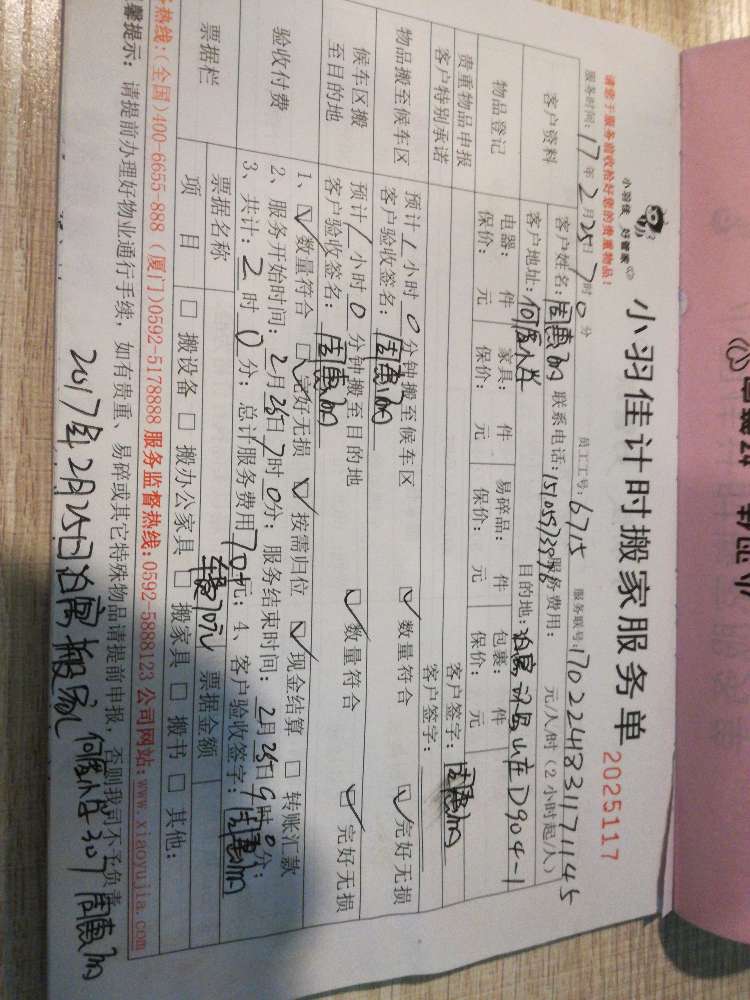 小羽佳 好管家
小羽佳计时搬家服务单
2025117
请您于服务前收拾好您的贵重物品!
员工工号: 6715 服务联号: 170224831171145
服务时间: 17年2月25日7时0分
服务费用: 元/人/时(2小时起/人)
客户资料
客户姓名: 周惠 联系电话:
客户地址: 何厝小学 目的地: 泊寓 山庄D904-1
物品登记
电器: 件 家具: 件 易碎品: 件 包裹: 件
保价: 元 保价: 元 保价: 元 保价: 元
贵重物品申报
客户签字: 周惠
客户特别承诺
客户签字:
物品搬至候车区
预计1小时0分钟搬至候车区 ☑数量符合 ☑完好无损
客户验收签名: 周惠
候车区搬至目的地
预计1小时0分钟搬至目的地 ☑数量符合 ☑完好无损
客户验收签名: 周惠
验收付费
1、☑数量符合 ☑完好无损 ☑按需归位 ☑现金结算 □转账汇款
2、服务开始时间: 2月25日7时0分; 服务结束时间: 2月25日9时0分;
3、共计: 2时0分; 总计服务费用70元; 4、客户验收签字: 周惠
票据栏
票据名称 车费70元 票据金额
项目 □搬设备 □搬办公家具 □搬家具 □搬书 □其他:
热线:(全国)400-6655-888 (厦门)0592-5178888 服务监督热线:0592-5888123 公司网站:www.xiaoyujia.com
馨提示: 请提前办理好物业通行手续, 如有贵重、易碎或其它特殊物品请提前申报, 否则我司不予负责
2017年2月25日泊寓搬家 何厝小学307 周惠